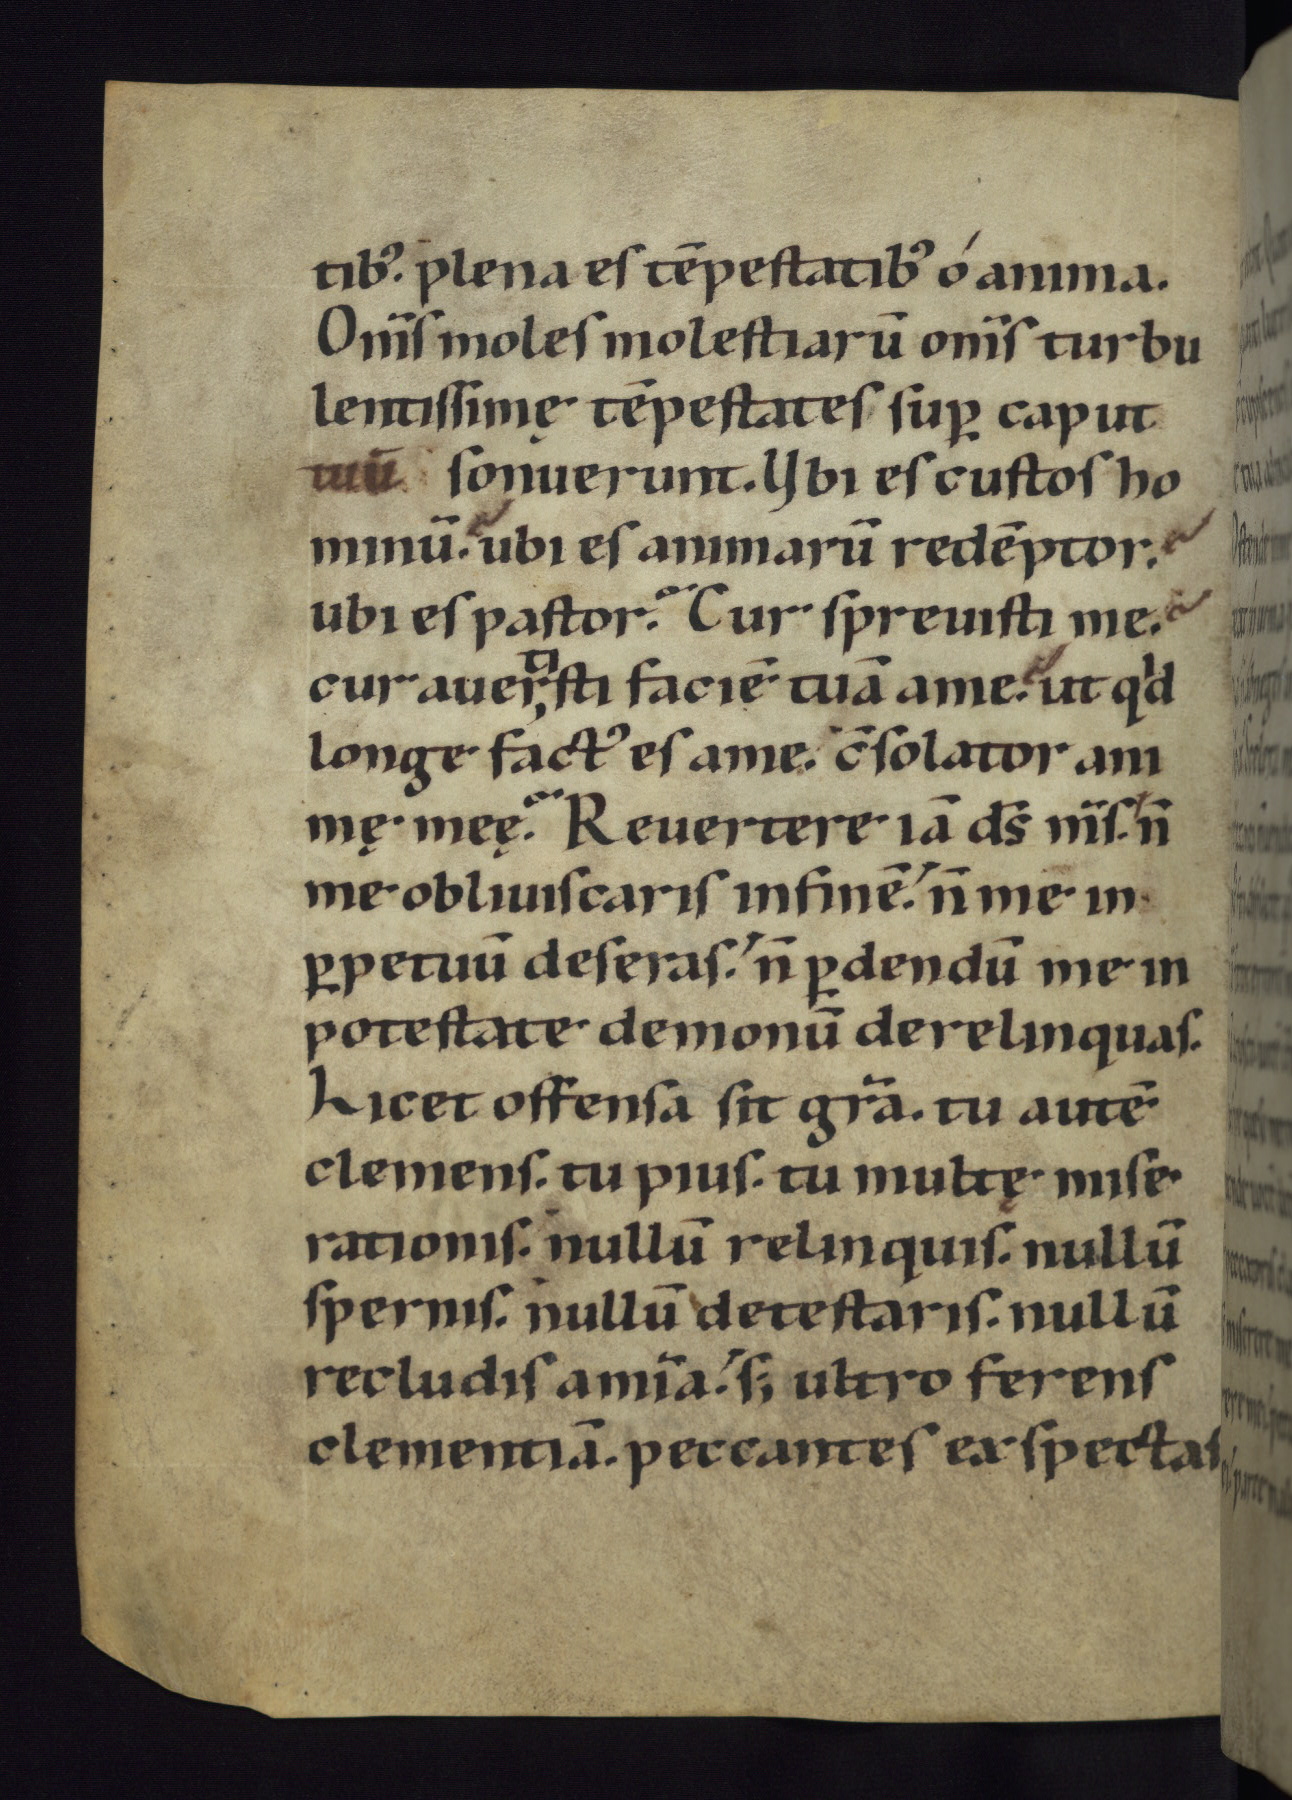 tib᷒. plena es tēpestatib᷒ ó anima.
Om̄s moles molestiarū om̄s turbu
lentissimę tēpestates suꝑ caput
tuū sonuerunt. Vbi es custos ho
minū. ubi es animarū redēptor.
ubi es pastor. Cur spreuisti me.
cur auertisti faciē tuā a me. ut qd
longe fact᷒ es a me. c̄solator ani
mę meę. Reuertere iā ds̄ m̄s. n̄
me obliuiscaris in finē. n̄ me in
ꝑpetuū deseras. n̄ ꝑdendū me in
potestate demonū derelinquas.
Licet offensa sit gr̄a. tu autē
clemens. tu pius. tu multę mise
rationis. nullū relinquis. nullū
spernis. nullū detestaris. nullū
recludis a mīa. s; ultro ferens
clementiā. peccantes exspectas